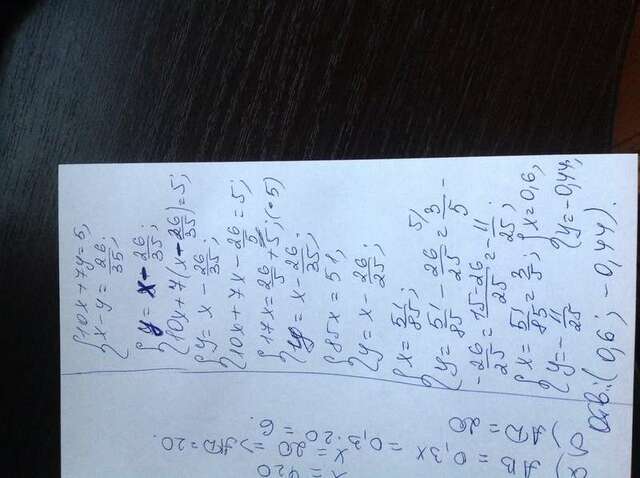 10x+7y=5;
x-y=26/35;
y=x-26/35;
10x+7(x-26/35)=5;
y=x-26/35;
10x+7x-26/5=5;
17x=26/5+5; (·5)
y=x-26/35;
85x=51;
y=x-26/25;
x=51/85;
y=51/85-26/25=3/5-
-26/25=15-26/25=-11/25;
x=51/85=3/5; x=0,6;
y=-11/25 y=-0,44;
Отв.: (0,6; -0,44).
x=420
x=20 => AD=20.
AB=0,3x=0,3·20=6.
AD=20